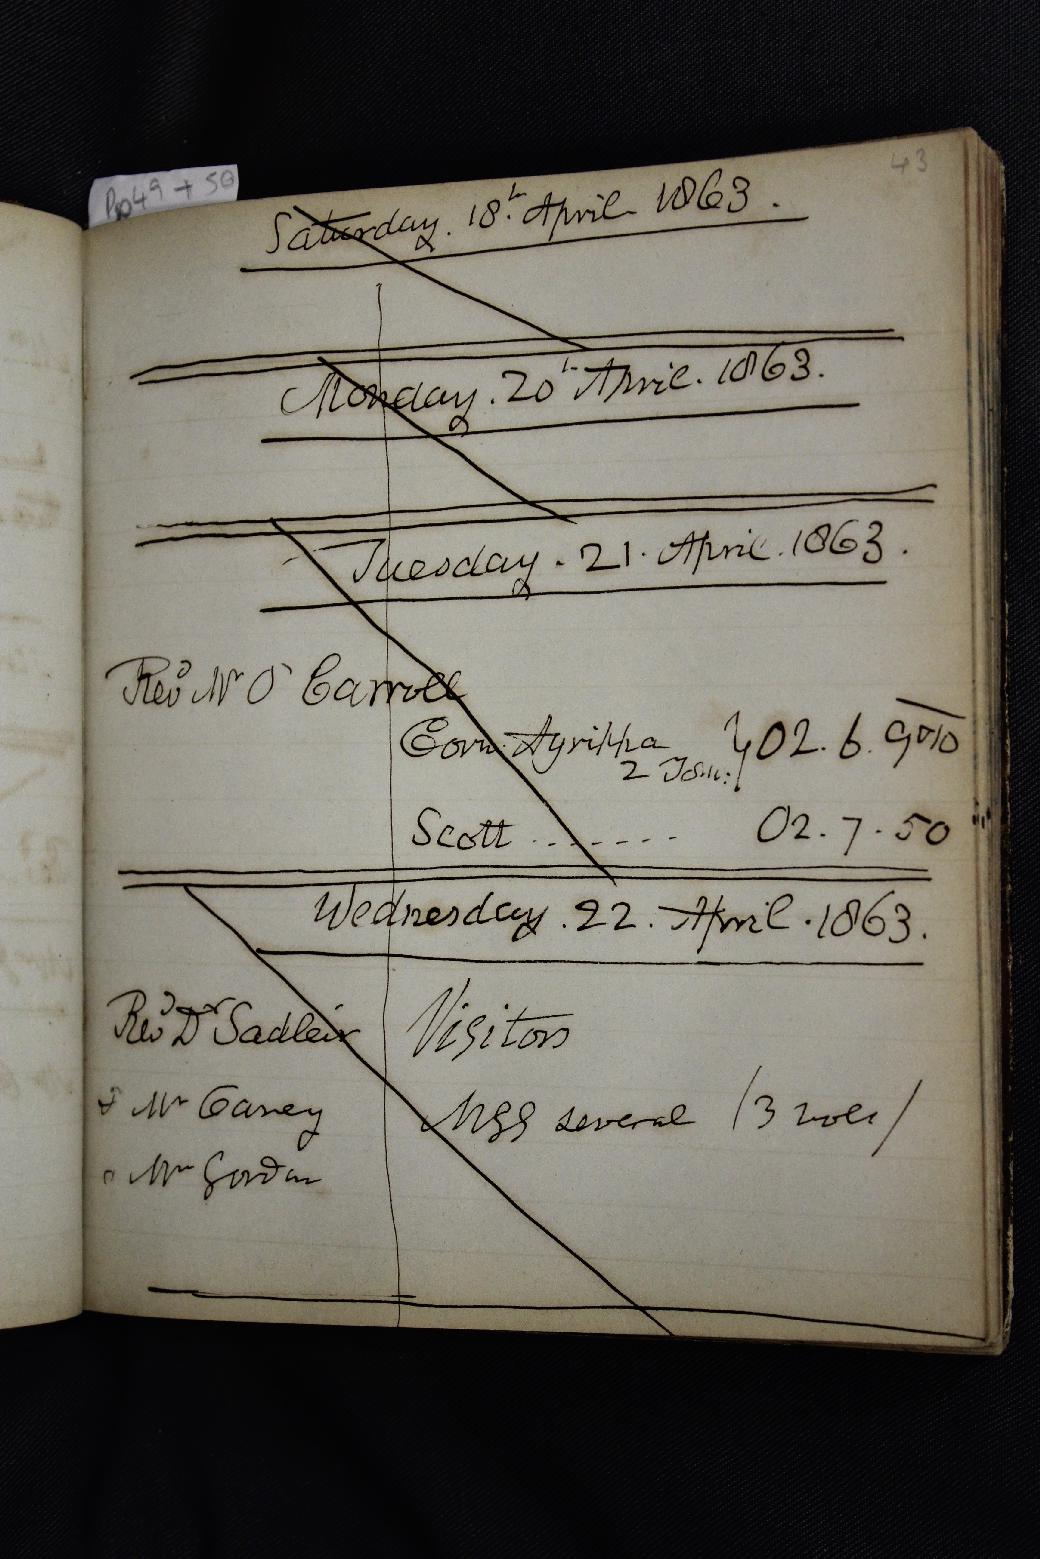 43
Pp 49 + 50
Saturday. 18th April 1863.
Monday. 20th April. 1863.
Tuesday. 21. April. 1863.
Revd Mr O'Carroll
Corn. Agrippa } 02. 6. 9
2 Tom:
Scott ....... 02. 7. 50
Wednesday. 22. April. 1863.
Revd Dr Sadleir Visitors
Mr Carey MSS several (3 vols)
Mr Gordon